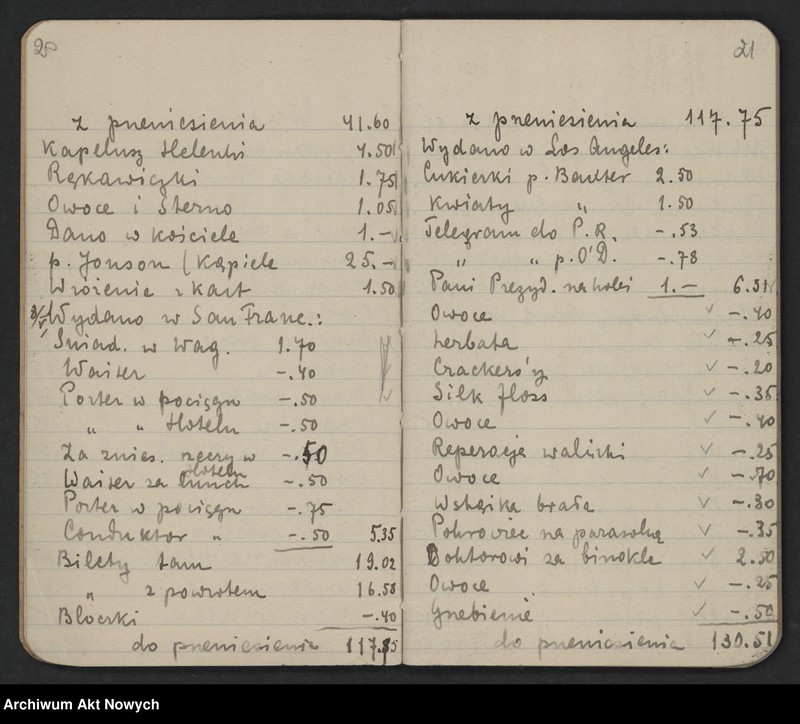 20
z przeniesienia 41.60
Kapelusz Helenki 4.50
Rękawiczki 1.75
Owoce i Sterno 1.05
Dano w kościele 1.—
p. Jonson (Kąpiele 25.—
Wróżenie z kart 1.50
Wydano w San Franc.:
Śniad. w Wag. 1.70
Waiter —.40
Porter w pociągu —.50
„ „ Hotelu —.50
Za znies. rzeczy w Hotelu —.50
Waiter za lunch —.50
Porter w pociągu —.75
Conduktor „ —.50 5.35
Bilety tam 19.02
„ z powrotem 16.58
Bloczki —.40
do przeniesienia 117.75
21
z przeniesienia 117.75
Wydano w Los Angeles:
Cukierki p. Baxter 2.50
Kwiaty „ 1.50
Telegram do P.R. —.53
„ „ p. O'D. —.78
Pani Prezyd. na kolei 1.— 6.31
Owoce —.40
Herbata —.25
Crackers'y —.20
Silk floss —.35
Owoce —.40
Reperacja walizki —.25
Owoce —.70
Wstążka biała —.30
Pokrowiec na parasolkę —.35
Doktorowi za binokle 2.50
Owoce —.25
Grzebienie —.50
do przeniesienia 130.51
Archiwum Akt Nowych